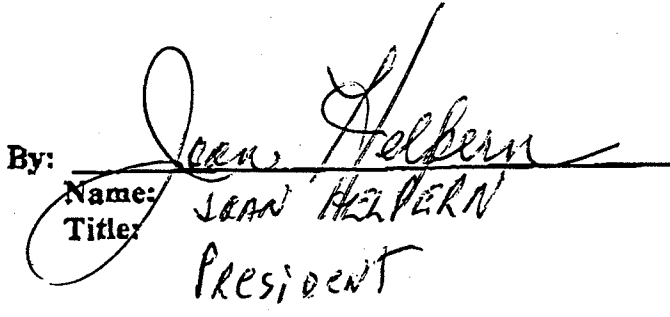 By: Joan Helpern
Name: JOAN HELPERN
Title: PRESIDENT